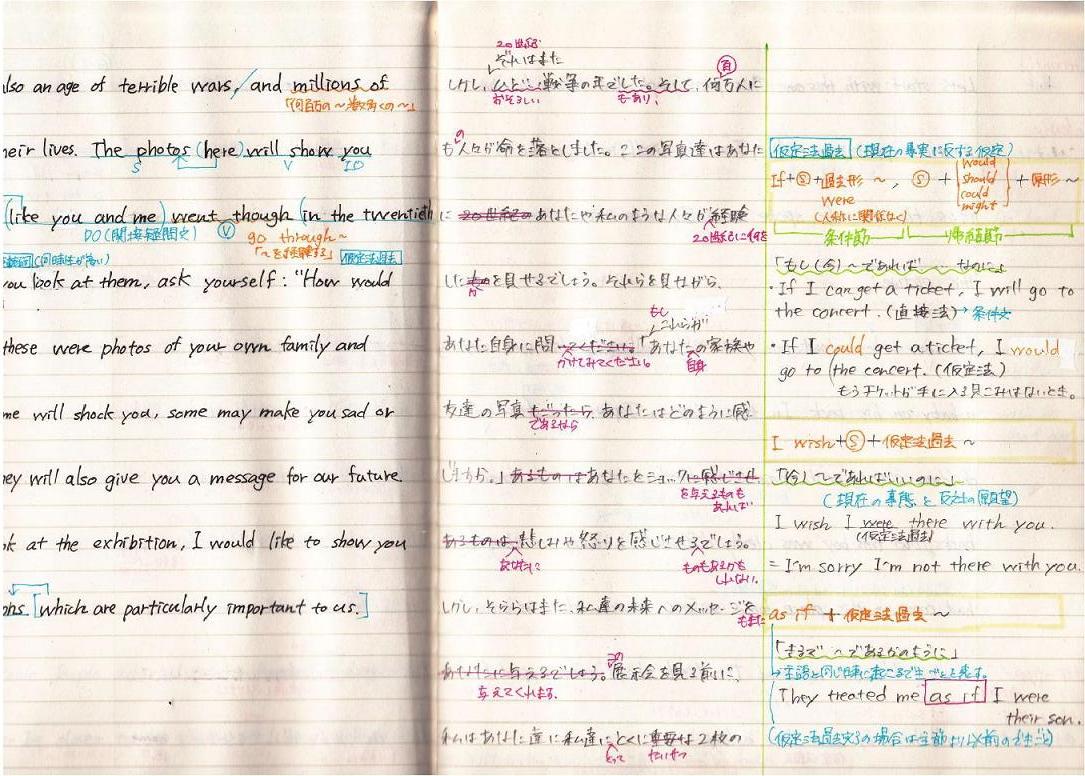 lso an age of terrible wars, and millions of
「何百万の〜
heir lives. The photos (here) will show you
S V IO
(like you and me) went though (in the twentieth
DO (間接疑問文) V go through〜
「〜を経験する」 仮定法過去
you look at them, ask yourself : "How would
these were photos of your own family and
me will shock you, some may make you sad or
hey will also give you a message for our future.
ok at the exhibition, I would like to show you
ons [which are particularly important to us.]
20世紀
それはまた
しかし, ひどい戦争の年でした。そして, 何万人に
百
おそろしい もあり,
も人々が命を落としました。ここの写真達はあなた
の
に 20世紀の あなたや私のような人々が経験
20世紀に何を
した を見せるでしょう。それらを見ながら,
か
もし
これらが
あなた自身に問 ってください。「あなたの家族や
かけてみてください。 自身
友達の写真だったら, あなたはどのように感
であるなら
じますか。」あるものはあなたをショックに感じさせ,
を与えるものも
あれば
あるものは, 悲しみや怒りを感じさせるでしょう。
あなたに ものもあるかも
しれない。
しかし, それらはまた, 私達の未来へのメッセージを
もまた
あなたに与えるでしょう。展示会を見る前に,
この
与えてくれます。
私はあなた達に私達にとくに重要な2枚の
とって たいせつ
仮定法過去 (現在の事実に反する仮定)
If + S + 過去形 〜, S + would should could might + 原形 〜
were
(人称に関係なく)
条件節 帰結節
「もし(今)〜であれば … なのに」
・If I can get a ticket, I will go to
the concert. (直接法) → 条件文
・If I could get a ticket, I would
go to the concert. (仮定法)
もうチケットが手に入る見こみはないとき。
I wish + S + 仮定法過去 〜
「(今)〜であればいいのに」
(現在の事態と反対の願望)
I wish I were there with you.
(仮定法過去)
= I'm sorry I'm not there with you.
as if + 仮定法過去 〜
「まるで〜であるかのように」
→ 主語と同じ時に起こるできごとを表す。
They treated me as if I were
their son.
(仮定法過去完了の場合は主節より以前のできごと)